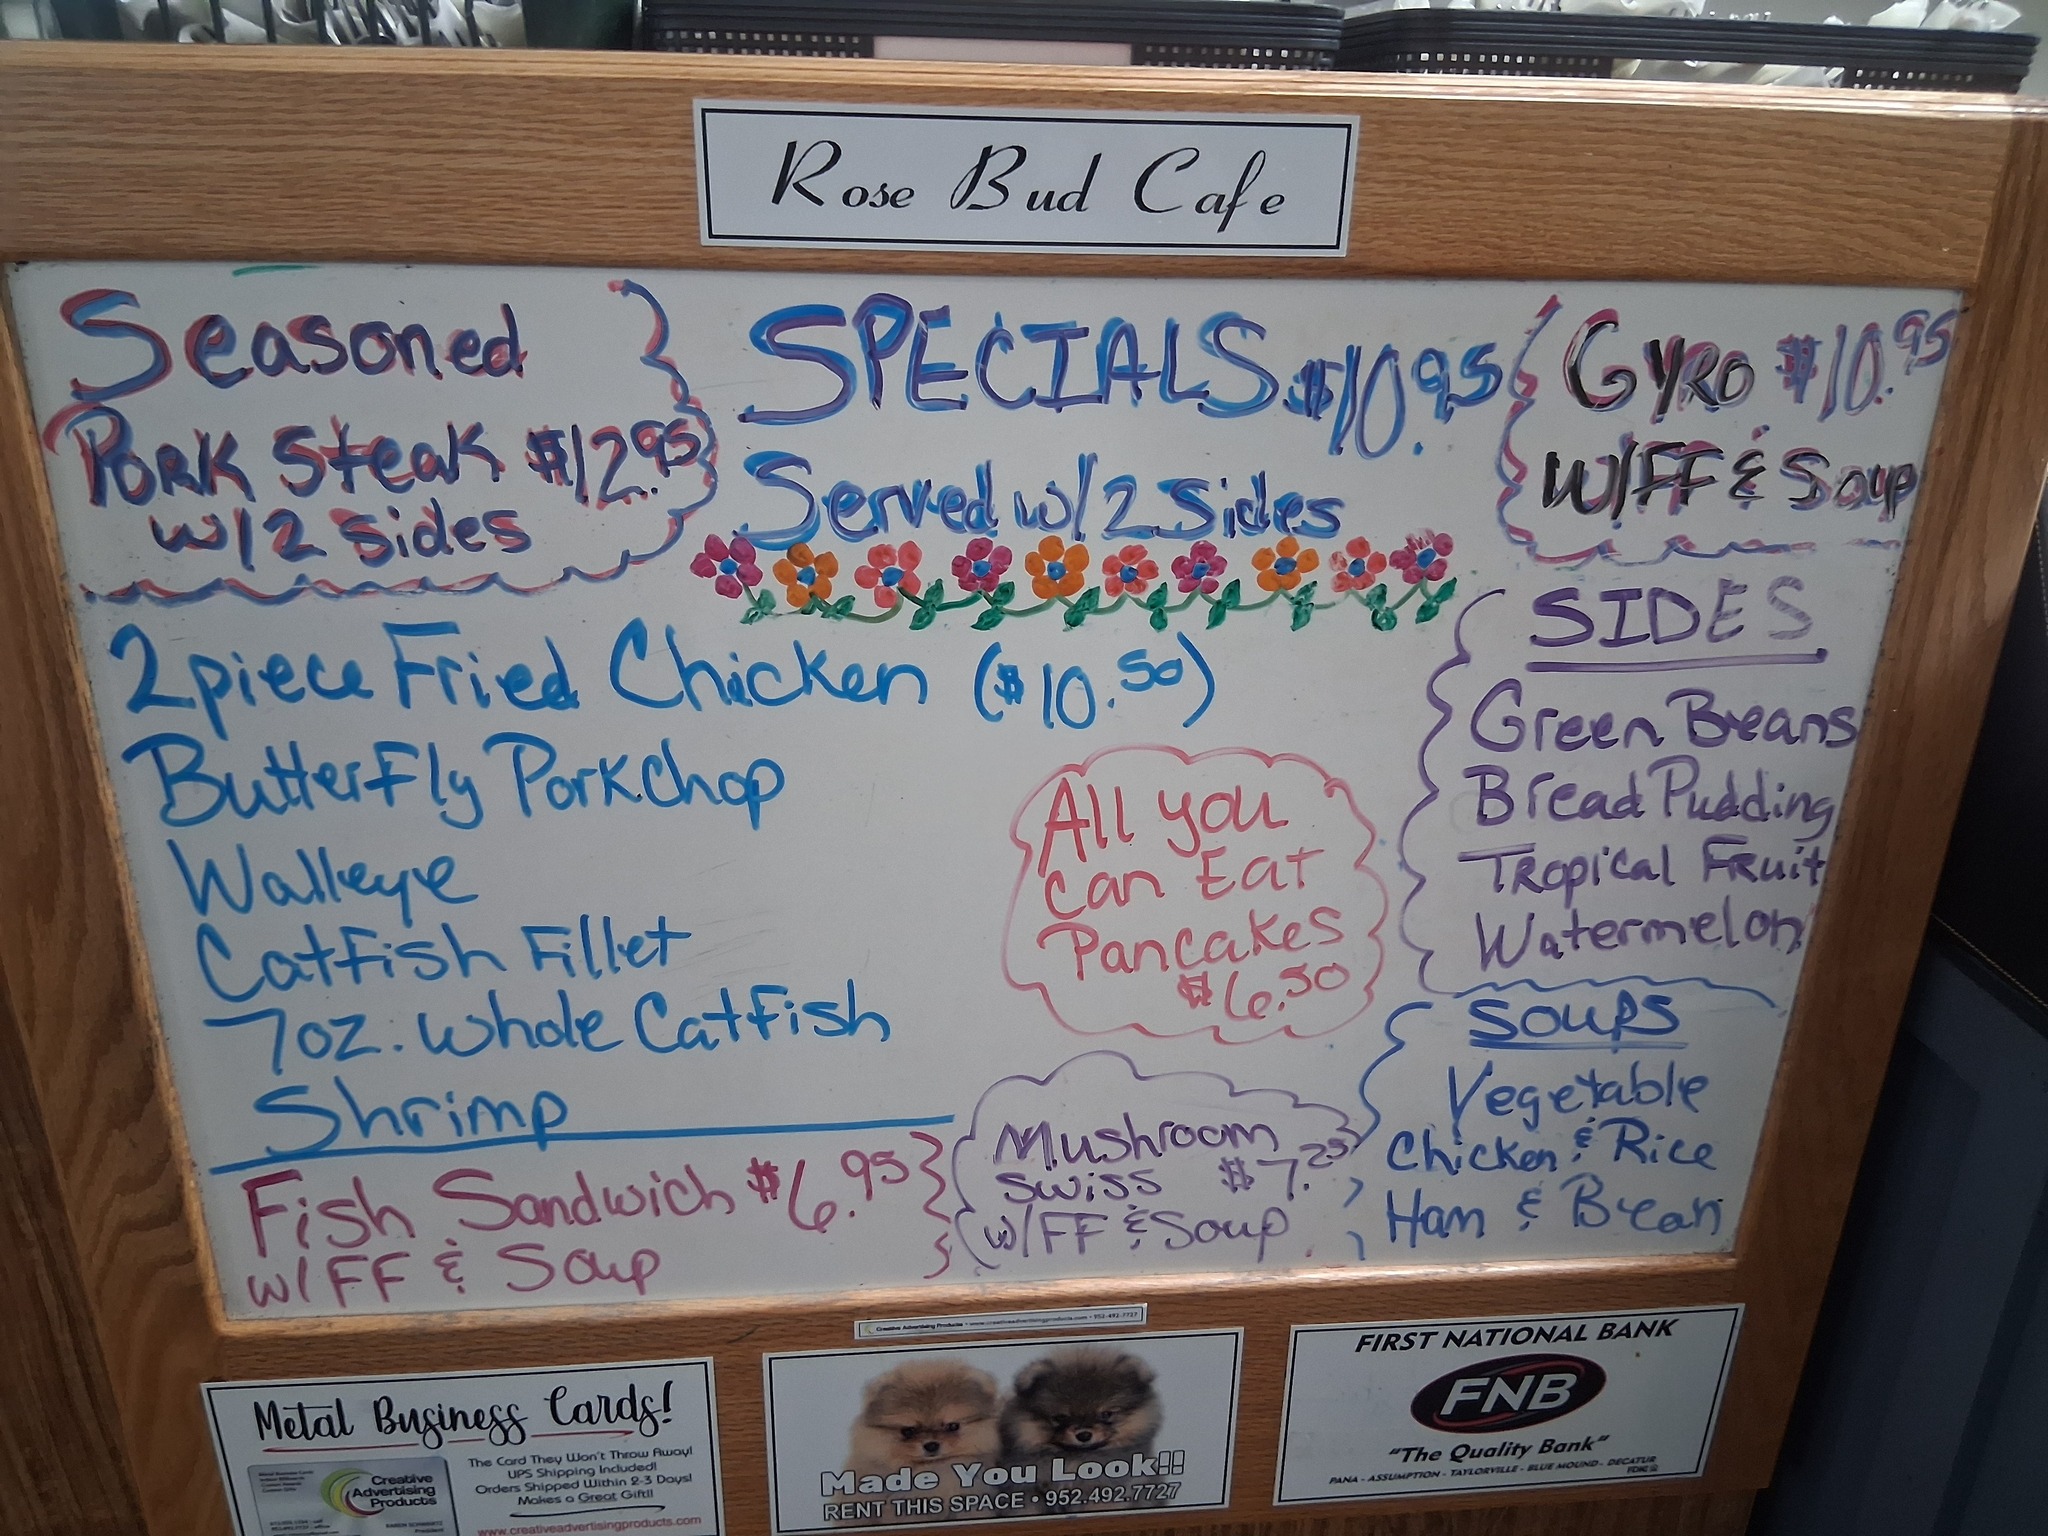 Rose Bud Cafe
Seasoned
Pork Steak $12.95
w/2 sides
SPECIALS $10.95
Served w/2 sides
Gyro $10.95
w/FF & Soup
2 piece Fried Chicken ($10.50)
Butterfly Porkchop
Walleye
Catfish Fillet
7oz. Whole Catfish
Shrimp
All you
can Eat
Pancakes
$6.50
SIDES
Green Beans
Bread Pudding
Tropical Fruit
Watermelon
Soups
Vegetable
Chicken & Rice
Ham & Bean
Fish Sandwich $6.95
w/FF & Soup
Mushroom
Swiss $7.25
w/FF & Soup
Creative Advertising Products • www.creativeadvertisingproducts.com • 952.492.7727
Metal Business Cards!
The Card They Won't Throw Away!
UPS Shipping Included!
Orders Shipped Within 2-3 Days!
Makes a Great Gift!!
www.creativeadvertisingproducts.com
Creative
Advertising
Products
Made You Look!!
RENT THIS SPACE • 952.492.7727
FIRST NATIONAL BANK
FNB
"The Quality Bank"
PANA - ASSUMPTION - TAYLORVILLE - BLUE MOUND - DECATUR
FDIC